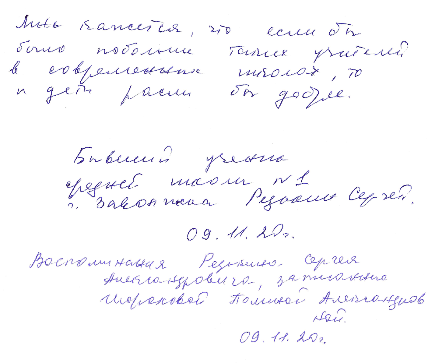 Мне кажется, что если бы
было побольше таких учителей
в современных школах, то
и дети росли бы добрее.
Бывший ученик
средней школы №1
г. Заволжска Редькин Сергей.
09.11.20г.
Воспоминания Редькина Сергея
Александровича, записанно
Полиной Александров
ной.
09.11.20г.